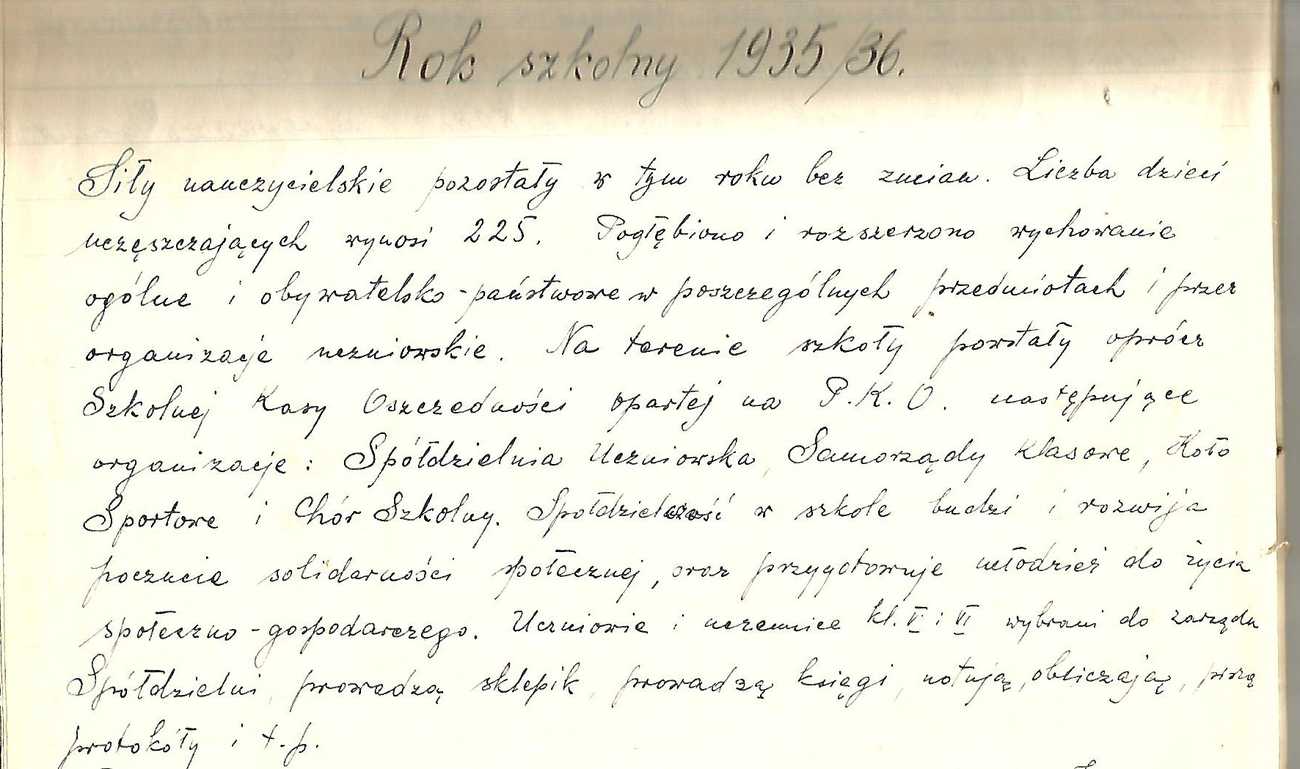 Rok szkolny 1935/36.
Siły nauczycielskie pozostały w tym roku bez zmian. Liczba dzieci
uczęszczających wynosi 225. Pogłębiono i rozszerzono wychowanie
ogólne i obywatelsko-państwowe w poszczególnych przedmiotach i przez
organizacje uczniowskie. Na terenie szkoły powstały oprócz
Szkolnej Kasy Oszczędności opartej na P.K.O. następujące
organizacje: Spółdzielnia Uczniowska, Samorządy klasowe, Koło
Sportowe i Chór Szkolny. Spółdzielczość w szkole budzi i rozwija
poczucie solidarności społecznej, oraz przygotowuje młodzież do życia
społeczno-gospodarczego. Uczniowie i uczennice kl. V i VI wybrani do zarządu
Spółdzielni, prowadzą sklepik, prowadzą księgi, notują, obliczają, piszą
protokóły i t.p.